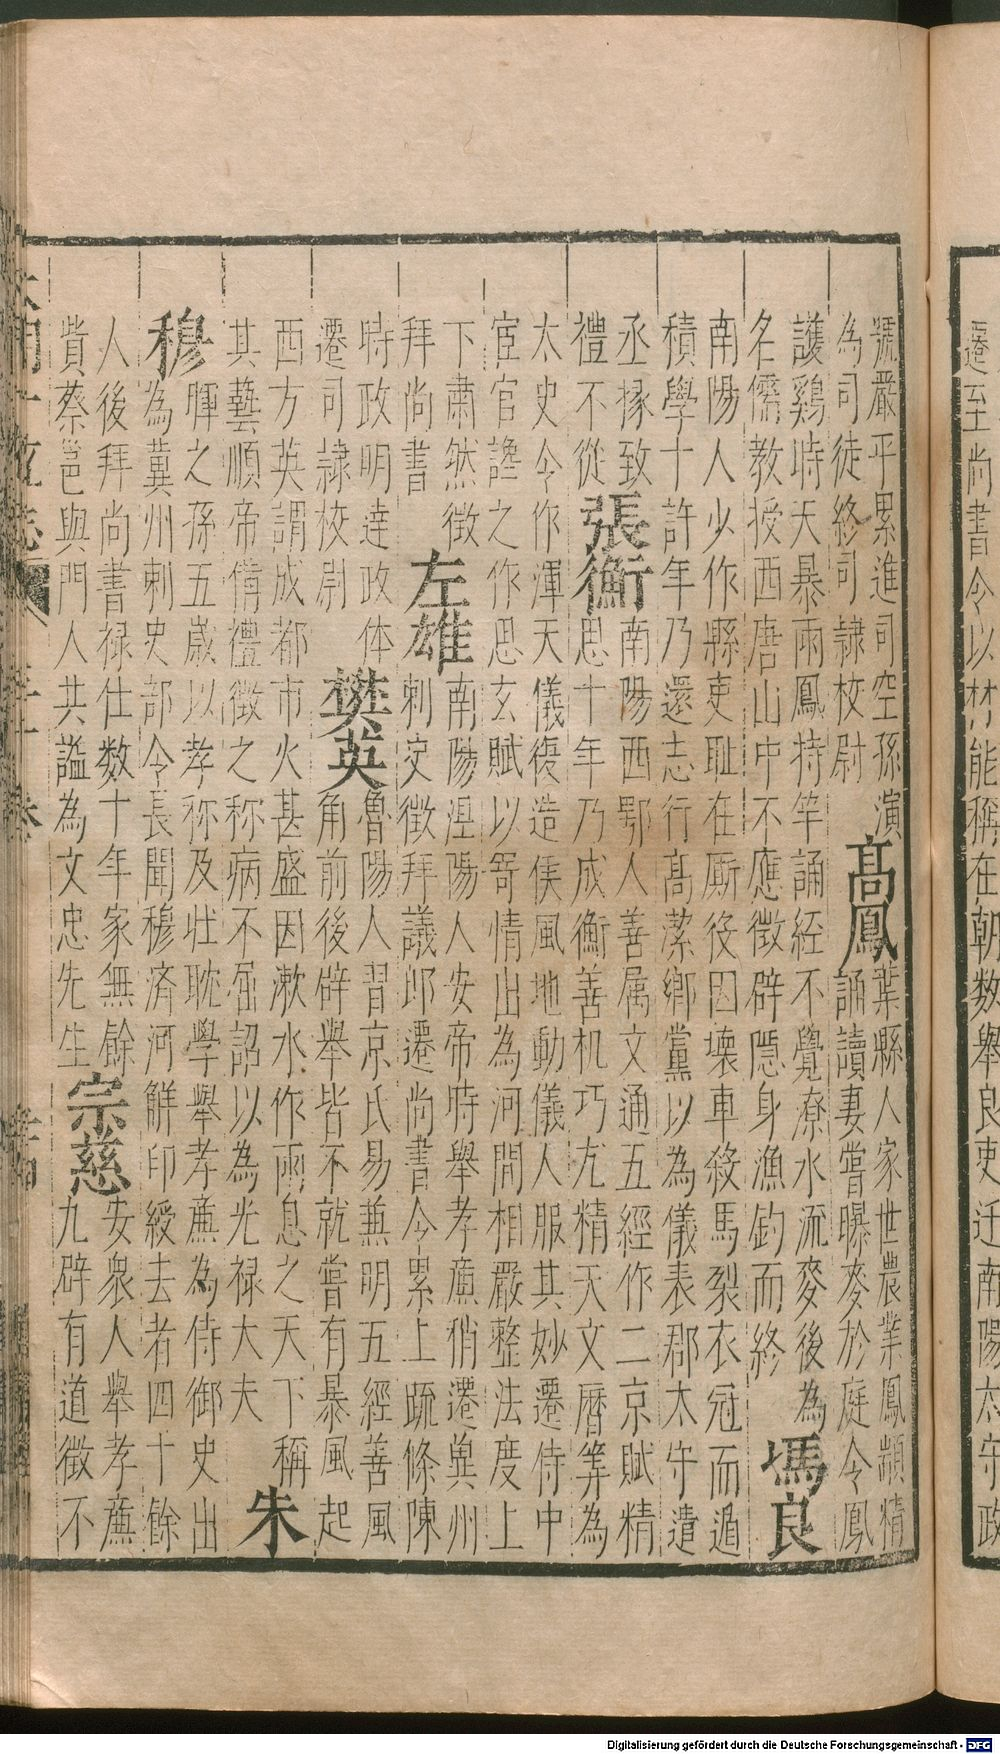 遷至尚書令以材能稱在朝数舉良吏迁南陽太守政
號嚴平累進司空孫演
為司徒終司隷校尉
髙鳳
葉縣人家世農業鳳顓精
誦讀妻嘗曝麥於庭令鳳
護鷄時天暴雨鳳持竿誦経不覺潦水流麥後為
名儒教授西唐山中不應徴辟隠身漁釣而終
馮良
南陽人少作縣吏耻在厮役因壊車殺馬裂衣冠而遁
積學十許年乃還志行髙潔鄉黨以為儀表郡太守遣
丞掾致
禮不從
張衡
南陽西鄂人善属文通五經作二京賦精
思十年乃成衡善机巧尤精天文暦筭為
太史令作渾天儀復造侯風地動儀人服其妙遷侍中
宦官讒之作思玄賦以寄情出為河間相嚴整法度上
下肅然徴
拜尚書
左雄
南陽涅陽人安帝時舉孝㢘稍遷冀州
刺史徴拜議郎遷尚書令累上疏條陳
時政明達政体
遷司隷校尉
樊英
魯陽人習京氏易兼明五經善風
角前後辟舉皆不就嘗有暴風起
西方英謂成都市火甚盛因漱水作雨息之天下稱
其藝順帝備禮徴之称病不屈詔以為光禄大夫
朱
穆
暉之孫五歲以孝称及壮耽學舉孝㢘為侍御史出
為冀州刺史部令長聞穆濟河觧印綬去者四十餘
人後拜尚書禄仕数十年家無餘
貲蔡邕與門人共謚為文忠先生
宗慈
安衆人舉孝㢘
九辟有道徴不
Digitalisierung gefördert durch die Deutsche Forschungsgemeinschaft - DFG